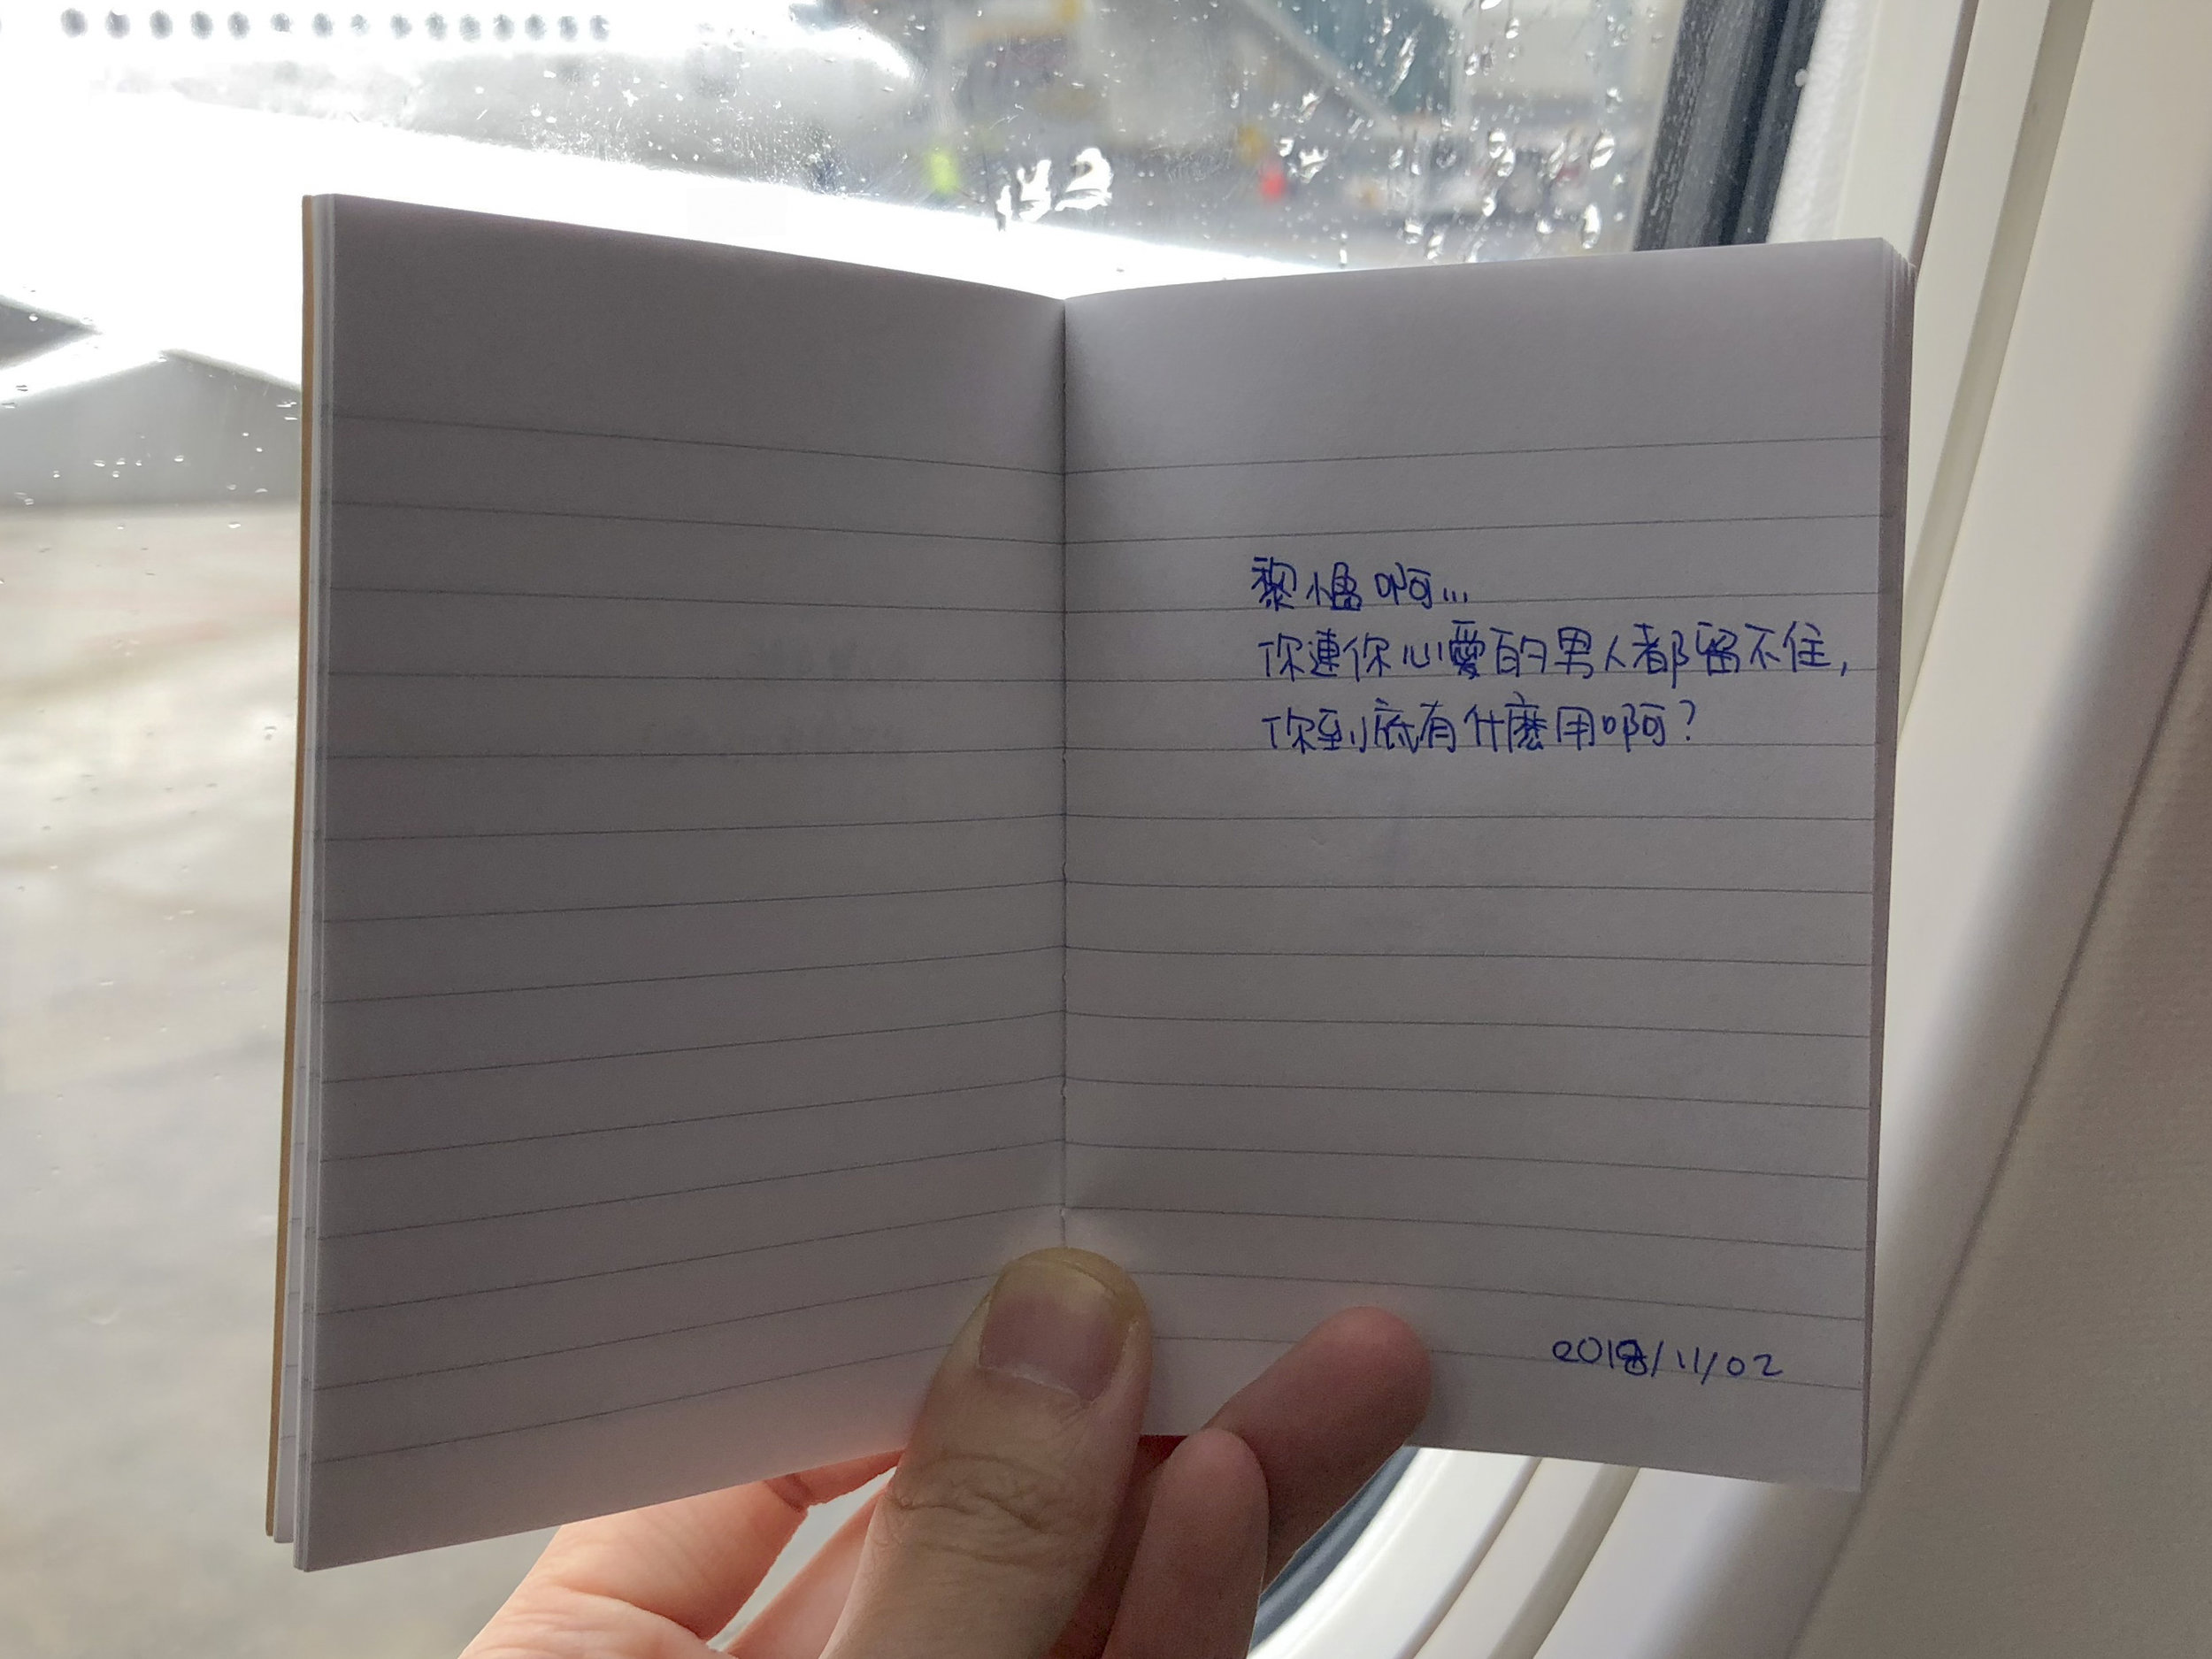 黎慍啊...
你連你心愛的男人都留不住，
你到底有什麼用啊？
2018/11/02